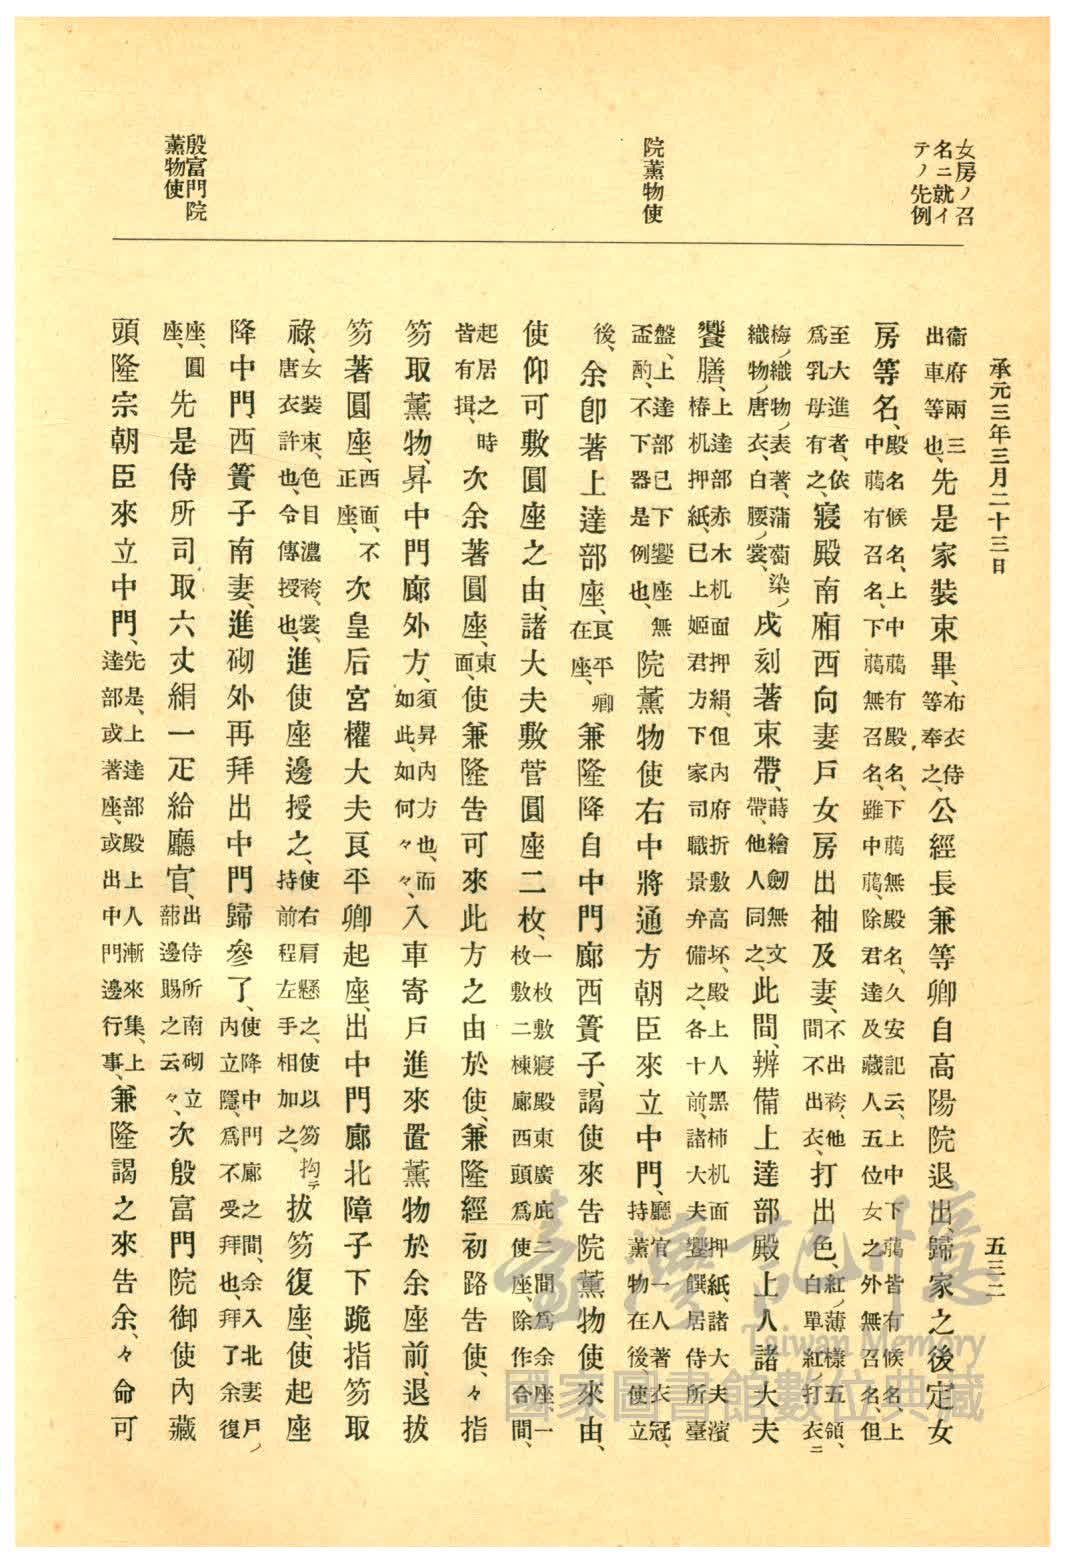 承元三年三月二十三日
五三二
女房ノ召
名ニ就イ
テノ先例
院薰物使
殷富門院
薰物使
衞府兩三出車等也、先是家裝束畢、布衣侍等奉之、公經長兼等卿自高陽院退出、歸家之後定女
房等名、殿名候名、上中﨟有殿名、下﨟無殿名、久安記云、上中下﨟皆有候名、上中﨟有召名、下﨟無召名、雖中﨟、除君達及藏人五位女之外無召名、但
至大進者、依爲乳母有之、寢殿南廂西向妻戶女房出袖及妻、不出袴、他間不出衣、打出色、紅ノ薄樣五領、白單紅ノ打衣ニ
梅ノ織物ノ表著、蒲萄染ノ織物ノ唐衣、白腰ノ裳、戌刻著束帶、蒔繪劒無文帶、他人同之、此間、辨備上達部殿上人諸大夫
饗膳、上達部赤木机面押絹、但內府折敷高坏、殿上人黑柿机面押紙、諸大夫濱椿机押紙、已上姬君方下家司職景弁備之、各十前、諸大夫饗饌居侍所臺
盤、上達部已下饗座無盃酌、不下器是例也、院薰物使右中將通方朝臣來立中門、廳官一人著衣冠、持薰物在後、使立
後、余卽著上達部座、良平卿在座、兼隆降自中門廊西簀子、謁使來告院薰物使來由、
使仰可敷圓座之由、諸大夫敷菅圓座二枚、一枚敷寢殿東廣庇二間爲余座、一枚敷二棟廊西頭爲使座、除作合間、
起居之時皆有揖、次余著圓座、東面、使兼隆告可來此方之由於使、兼隆經初路告使、々指
笏取薰物、昇中門廊外方、須昇內方也、而如此、如何々々、入車寄戶進來置薰物於余座前、退拔
笏著圓座、西面、不正座、次皇后宮權大夫良平卿起座、出中門廊北障子下跪指笏取
祿、女裝束、色目濃袴、裳、唐衣許也、令傳授也、進使座邊授之、使右肩懸之、使以笏拘テ持前程左手相加之、拔笏復座、使起座
降中門西簀子南妻、進砌外再拜出中門歸參了、使降中門廊之間、余入北妻戶ノ內立隱、爲不受拜也、拜了余復
座、圓座、先是侍所司取六丈絹一疋給廳官、出侍所南砌立蔀邊賜之云々、次殷富門院御使內藏
頭隆宗朝臣來立中門、先是、上達部殿上人漸來集、上達部或著座、或出中門邊行事、兼隆謁之來告余、々命可
臺灣記憶
Taiwan Memory
國家圖書館數位典藏